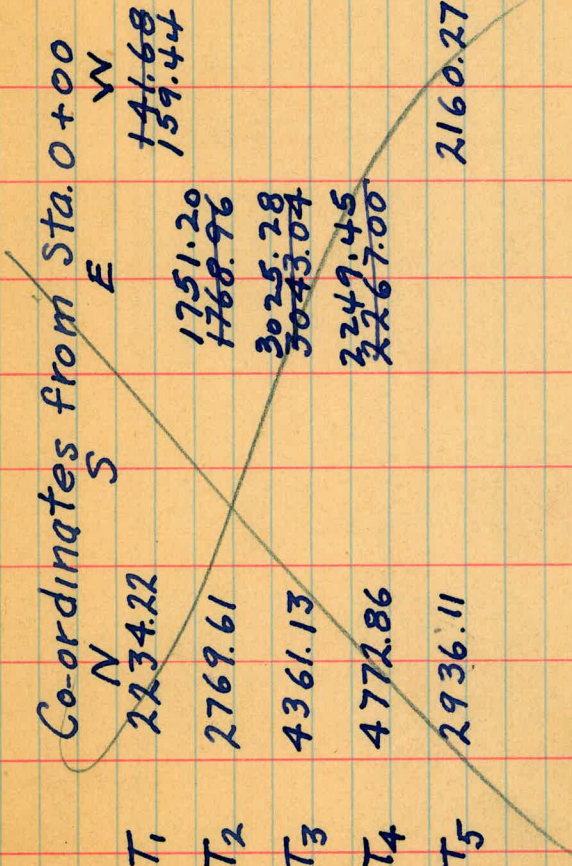 Co-ordinates from Sta. 0+00
N S E W
T1 2234.22 141.68
159.44
T2 2769.61 1751.20
1768.96
T3 4361.13 3025.28
3043.04
T4 4772.86 2249.45
2267.00
T5 2936.11 2160.27